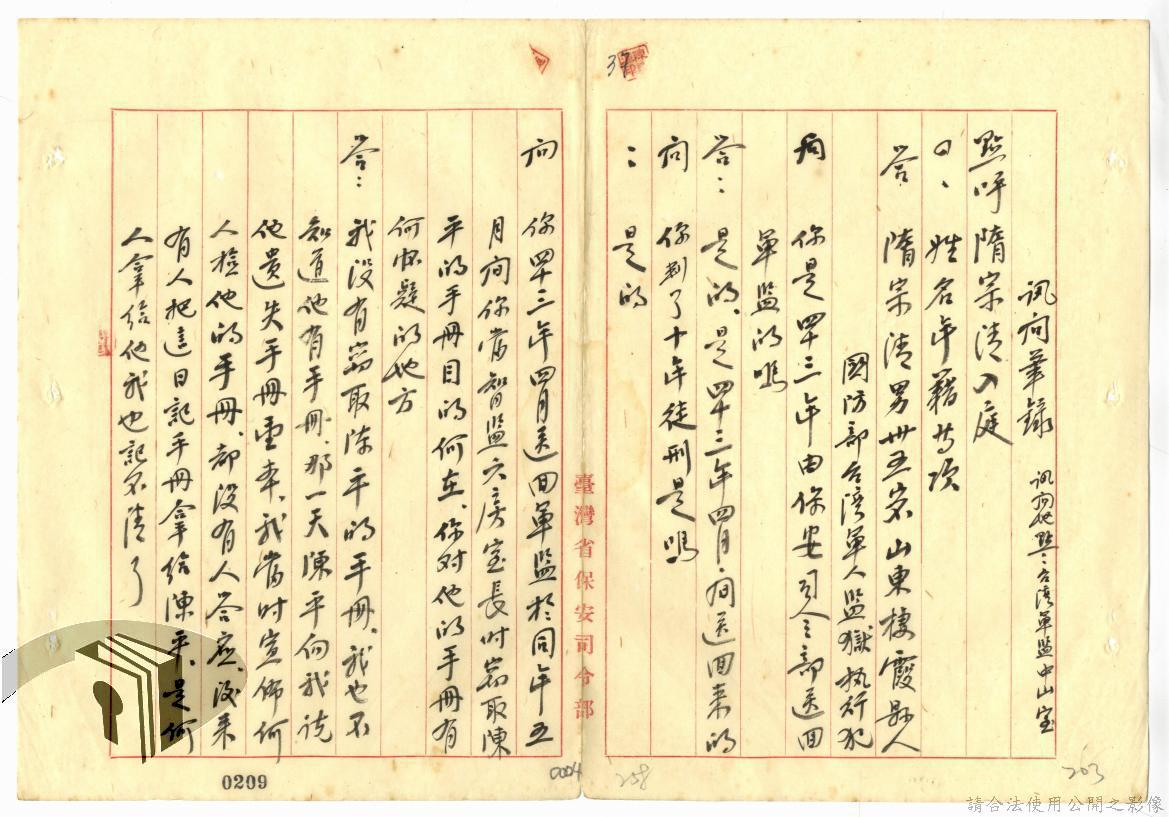 訊問筆錄 訊問地點：台湾軍監中山室
點呼隋宗清入庭
問、姓名年籍等項
答、隋宗清男卅五岁山東棲霞縣人
國防部台湾軍人監獄执行犯
問 你是四十三年由保安司令部送回
軍监的嗎
答：是的、是四十三年四月间送回来的
问 你判了十年徒刑是嗎
：是的
问 你四十三年四月送回軍监於同年五
月间你當智监六房室長时窃取陳
平的手册目的何在、你对他的手册有
何怀疑的地方
答：我没有窃取陈平的手册、我也不
知道他有手册、那一天陳平向我说
他遗失手册壹本、我當时宣佈何
人捡他的手册、都没有人答应、後来
有人把這日記手册拿给陳平、是何
人拿给他我也記不清了
臺灣省保安司令部
37
0209
0004
258
203
請合法使用公開之影像